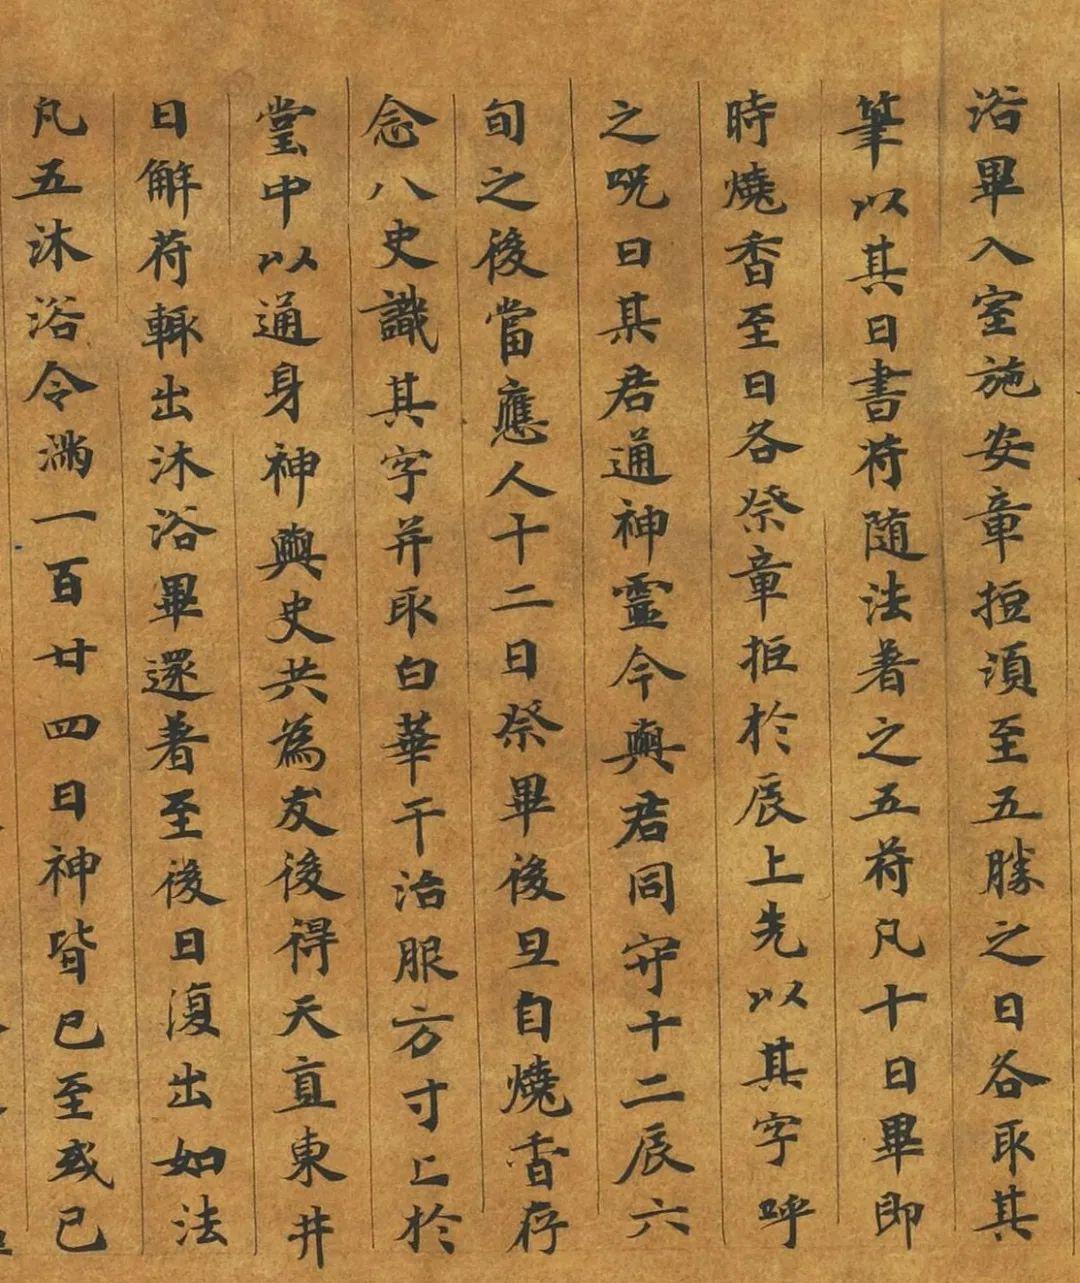 浴畢入室施安章拒須至五勝之日各取其
筆以其日書符随法著之五符凡十日畢即
時燒香至日各祭章拒於辰上先以其字呼
之呪曰某君通神靈今與君同守十二辰六
旬之後當應人十二日祭畢後旦自燒香存
念八史識其字并取白華干治服方寸上於
堂中以通身神與史共為友後得天直東井
日解符輙出沐浴畢還著至後日復出如法
凡五沐浴令滿一百廿四日神皆已至或已